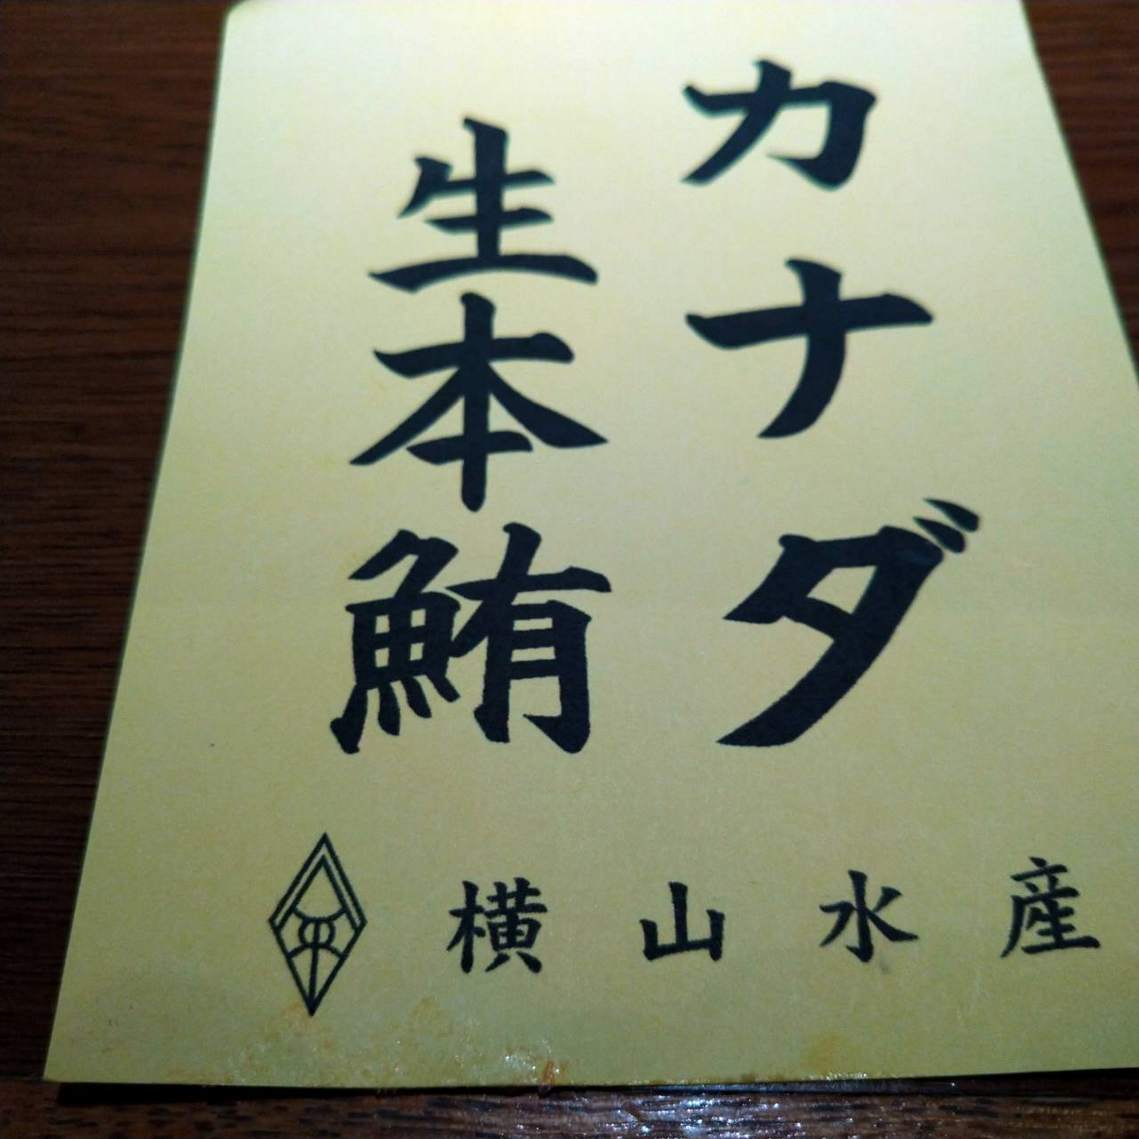 カナダ
生本鮪
横山水産